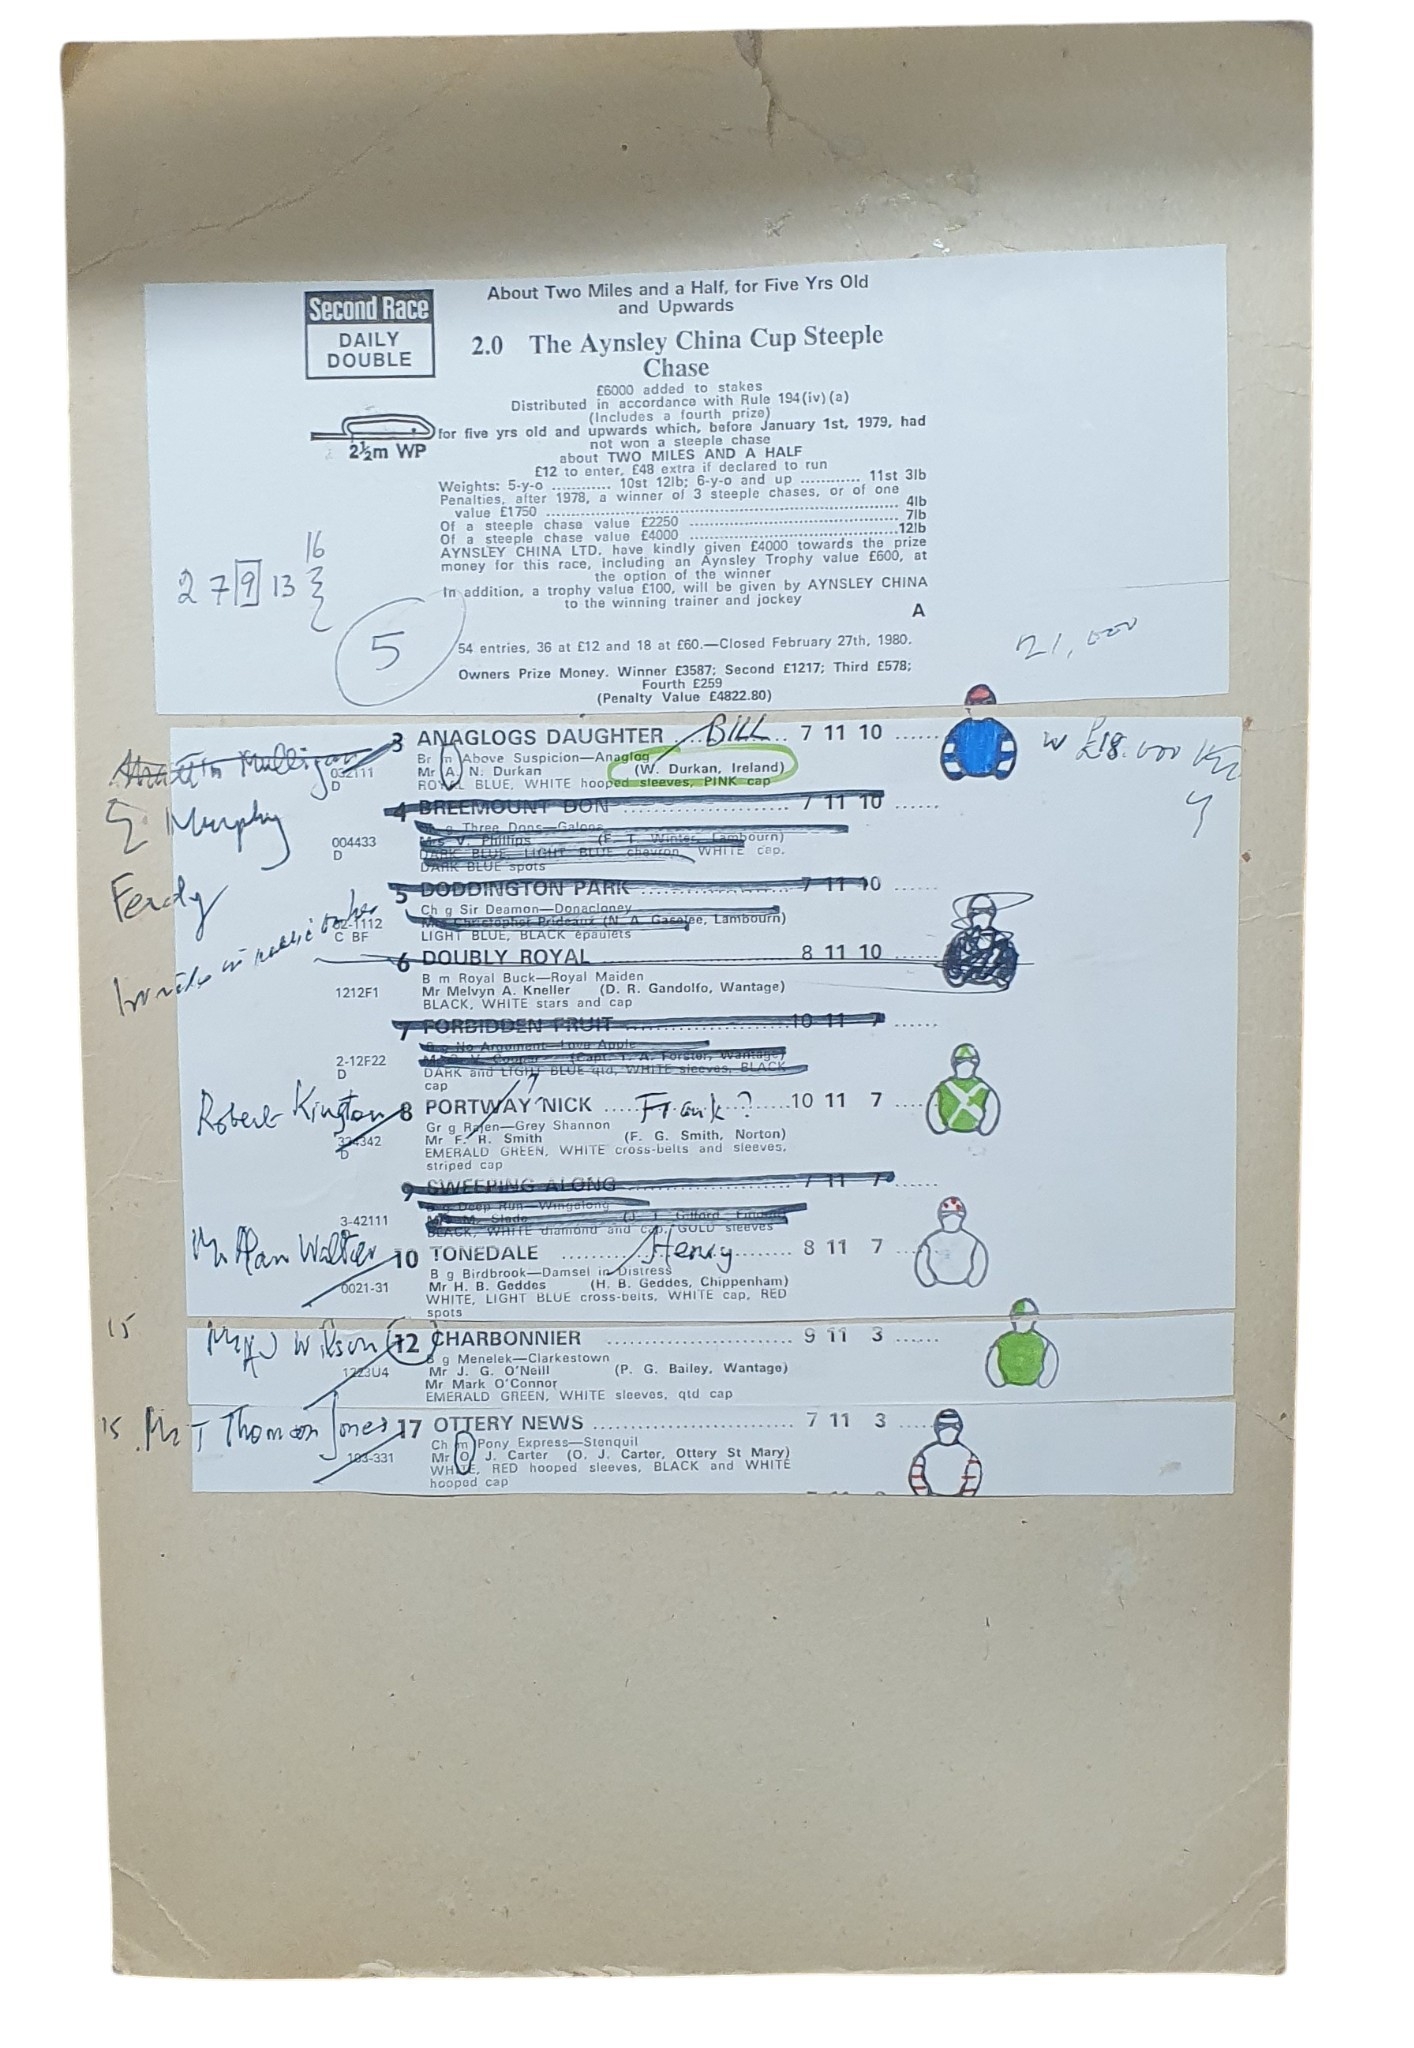 Second Race
DAILY
DOUBLE
2½m WP
About Two Miles and a Half, for Five Yrs Old
and Upwards
2.0 The Aynsley China Cup Steeple
Chase
£6000 added to stakes
Distributed in accordance with Rule 194(iv)(a)
(Includes a fourth prize)
for five yrs old and upwards which, before January 1st, 1979, had
not won a steeple chase
about TWO MILES AND A HALF
£12 to enter, £48 extra if declared to run
Weights: 5-y-o ............ 10st 12lb; 6-y-o and up ............ 11st 3lb
Penalties, after 1978, a winner of 3 steeple chases, or of one
value £1750 ............ 4lb
Of a steeple chase value £2250 ............ 7lb
Of a steeple chase value £4000 ............ 12lb
AYNSLEY CHINA LTD. have kindly given £4000 towards the prize
money for this race, including an Aynsley Trophy value £600, at
the option of the winner
In addition, a trophy value £100, will be given by AYNSLEY CHINA
to the winning trainer and jockey
A
16
2 7 9 13
5
54 entries, 36 at £12 and 18 at £60.—Closed February 27th, 1980.
21,000
Owners Prize Money. Winner £3587; Second £1217; Third £578;
Fourth £259
(Penalty Value £4822.80)
3 ANAGLOGS DAUGHTER BILL 7 11 10
Mulligan 032111 Br m Above Suspicion—Anaglog
D Mr A. N. Durkan (W. Durkan, Ireland)
ROYAL BLUE, WHITE hooped sleeves, PINK cap
W £18.000
Murphy
4 BREEMOUNT DON 7 11 10
B g Three Dons—Galona
004433 Mrs V. Phillips (F. T. Winter, Lambourn)
D DARK BLUE, LIGHT BLUE chevron, WHITE cap,
DARK BLUE spots
Ferdy
5 DODDINGTON PARK 7 11 10
Ch g Sir Deamon—Donacloney
02-1112 Mrs Christopher Prideaux (N. A. Gaselee, Lambourn)
C BF LIGHT BLUE, BLACK epaulets
6 DOUBLY ROYAL 8 11 10
B m Royal Buck—Royal Maiden
1212F1 Mr Melvyn A. Kneller (D. R. Gandolfo, Wantage)
BLACK, WHITE stars and cap
7 FORBIDDEN FRUIT 10 11 7
B g No Argument—Love Apple
2-12F22 (Capt T. A. Forster, Wantage)
D DARK and LIGHT BLUE qtd, WHITE sleeves, BLACK
cap
Robert Kington 8 PORTWAY NICK Frank? 10 11 7
Gr g Rajen—Grey Shannon
334342 Mr F. R. Smith (F. G. Smith, Norton)
D EMERALD GREEN, WHITE cross-belts and sleeves,
striped cap
9 SWEEPING ALONG 7 11 7
B g Deep Run—Wingalong
3-42111 Mrs M. Slade (J. T. Gifford, Findon)
BLACK, WHITE diamond and cap, GOLD sleeves
Mr Alan Walter 10 TONEDALE Henry 8 11 7
B g Birdbrook—Damsel in Distress
0021-31 Mr H. B. Geddes (H. B. Geddes, Chippenham)
WHITE, LIGHT BLUE cross-belts, WHITE cap, RED
spots
15 Mr A J Wilson 12 CHARBONNIER 9 11 3
B g Menelek—Clarkestown
1223U4 Mr J. G. O'Neill (P. G. Bailey, Wantage)
Mr Mark O'Connor
EMERALD GREEN, WHITE sleeves, qtd cap
15 Mr T Thomson Jones 17 OTTERY NEWS 7 11 3
Ch m Pony Express—Stenquil
103-331 Mr O. J. Carter (O. J. Carter, Ottery St Mary)
WHITE, RED hooped sleeves, BLACK and WHITE
hooped cap